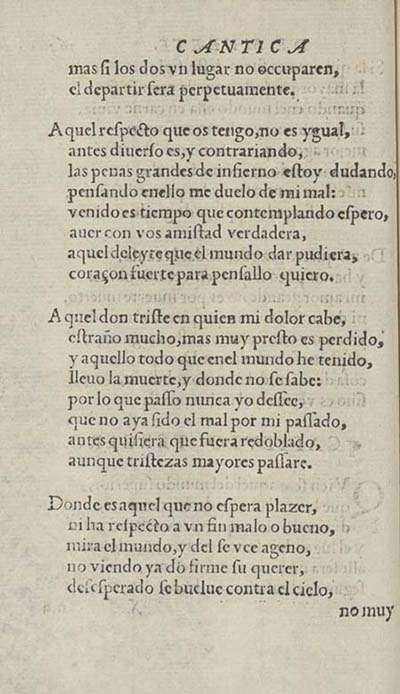 CANTICA
mas si los dos vn lugar no occuparen,
el departir sera perpetuamente.
Aquel respecto que os tengo, no es ygual,
antes diuerso es, y contrariando,
las penas grandes de infierno estoy dudando,
pensando enello me duelo de mi mal:
venido es tiempo que contemplando espero,
auer con vos amistad verdadera,
aquel deleyte que el mundo dar pudiera,
coraçon fuerte para pensallo quiero.
Aquel don triste en quien mi dolor cabe,
estraño mucho, mas muy presto es perdido,
y aquello todo que enel mundo he tenido,
lleuo la muerte, y donde no se sabe:
por lo que passo nunca yo dessee,
que no aya sido el mal por mi passado,
antes quisiera que fuera redoblado,
aunque tristezas mayores passare.
Donde es aquel que no espera plazer,
ni ha respecto a vn fin malo o bueno,
mira el mundo, y del se vee ageno,
no viendo ya do firme su querer,
desesperado se buelue contra el cielo,
no muy